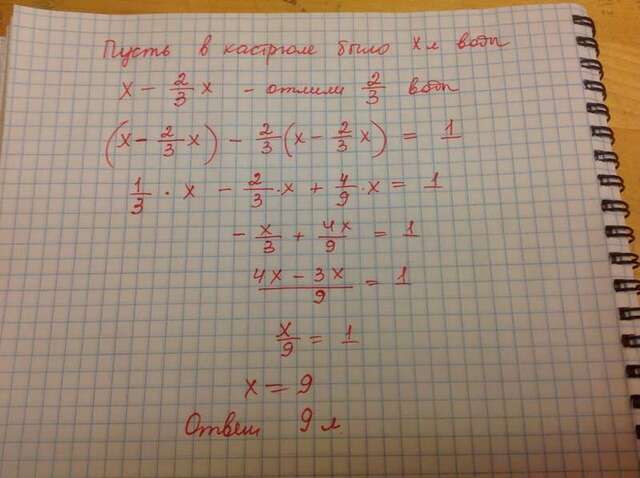 Пусть в кастрюле было x л воды
x - 2/3 x - отлили 2/3 воды
(x - 2/3 x) - 2/3 (x - 2/3 x) = 1
1/3 · x - 2/3 · x + 4/9 · x = 1
- x/3 + 4x/9 = 1
4x - 3x/9 = 1
x/9 = 1
x = 9
Ответ 9 л